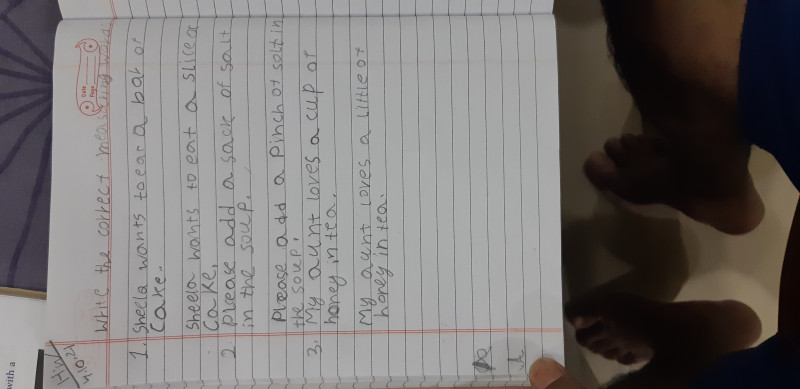 H/W
Date
Page
Write the correct measuring words
1. Sheela wants to eat a bar of
Cake.
Sheela wants to eat a slice of
Cake.
2. Please add a sack of salt
in the soup.
Please add a Pinch of solt in
the soup.
3. My aunt loves a cup of
honey in tea.
My aunt loves a little of
honey in tea.
with a